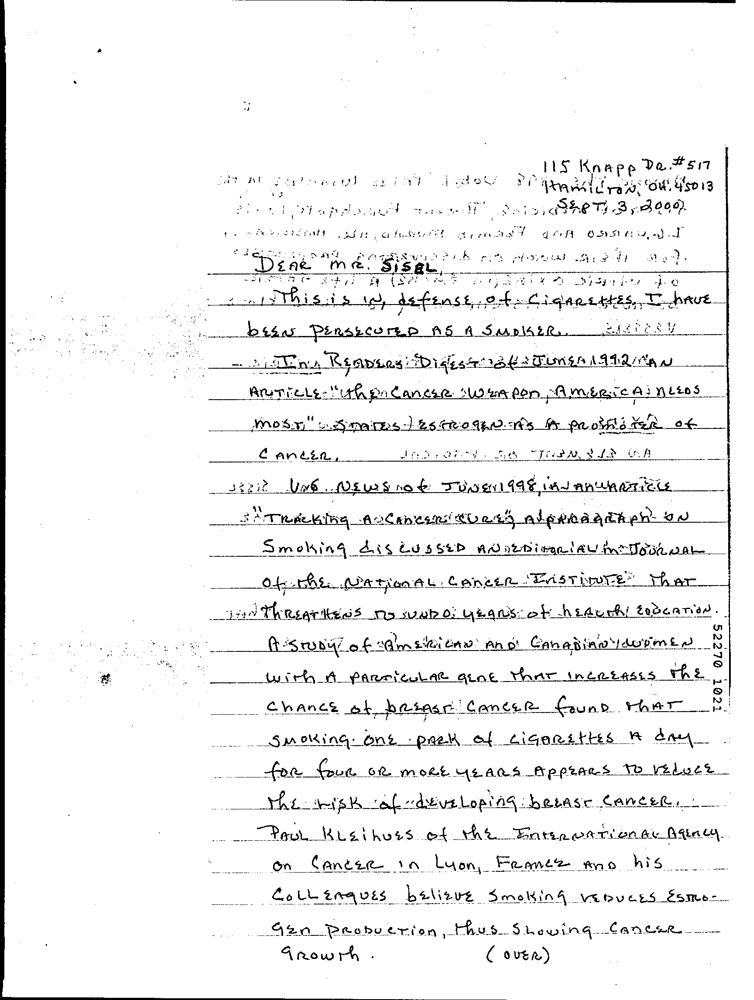 115 Knapp Dr. #517
Hamilton, OH. 45013
Sept, 3, 2000
Dear Mr. Sisel,
This is in defense of cigarettes. I have
been persecuted as a smoker.
In Readers Digest of June 1992 an
article "The Cancer Weapon America Needs
Most" states estrogen as a promoter of
cancer.
U.S. News of June 1998, in an article
"Tracking a Cancer Cure", a paragraph on
smoking discussed an editorial in Journal
of the National Cancer Institute that
threathens to undo years of health education.
A study of American and Canadian women
with a particular gene that increases the
chance of breast cancer found that
smoking one pack of cigarettes a day
for four or more years appears to reduce
the risk of developing breast cancer.
Paul Kleihues of the International Agency
on Cancer in Lyon, France and his
colleagues believe smoking reduces estro-
gen production, thus slowing cancer
growth. (over)
52270 1021